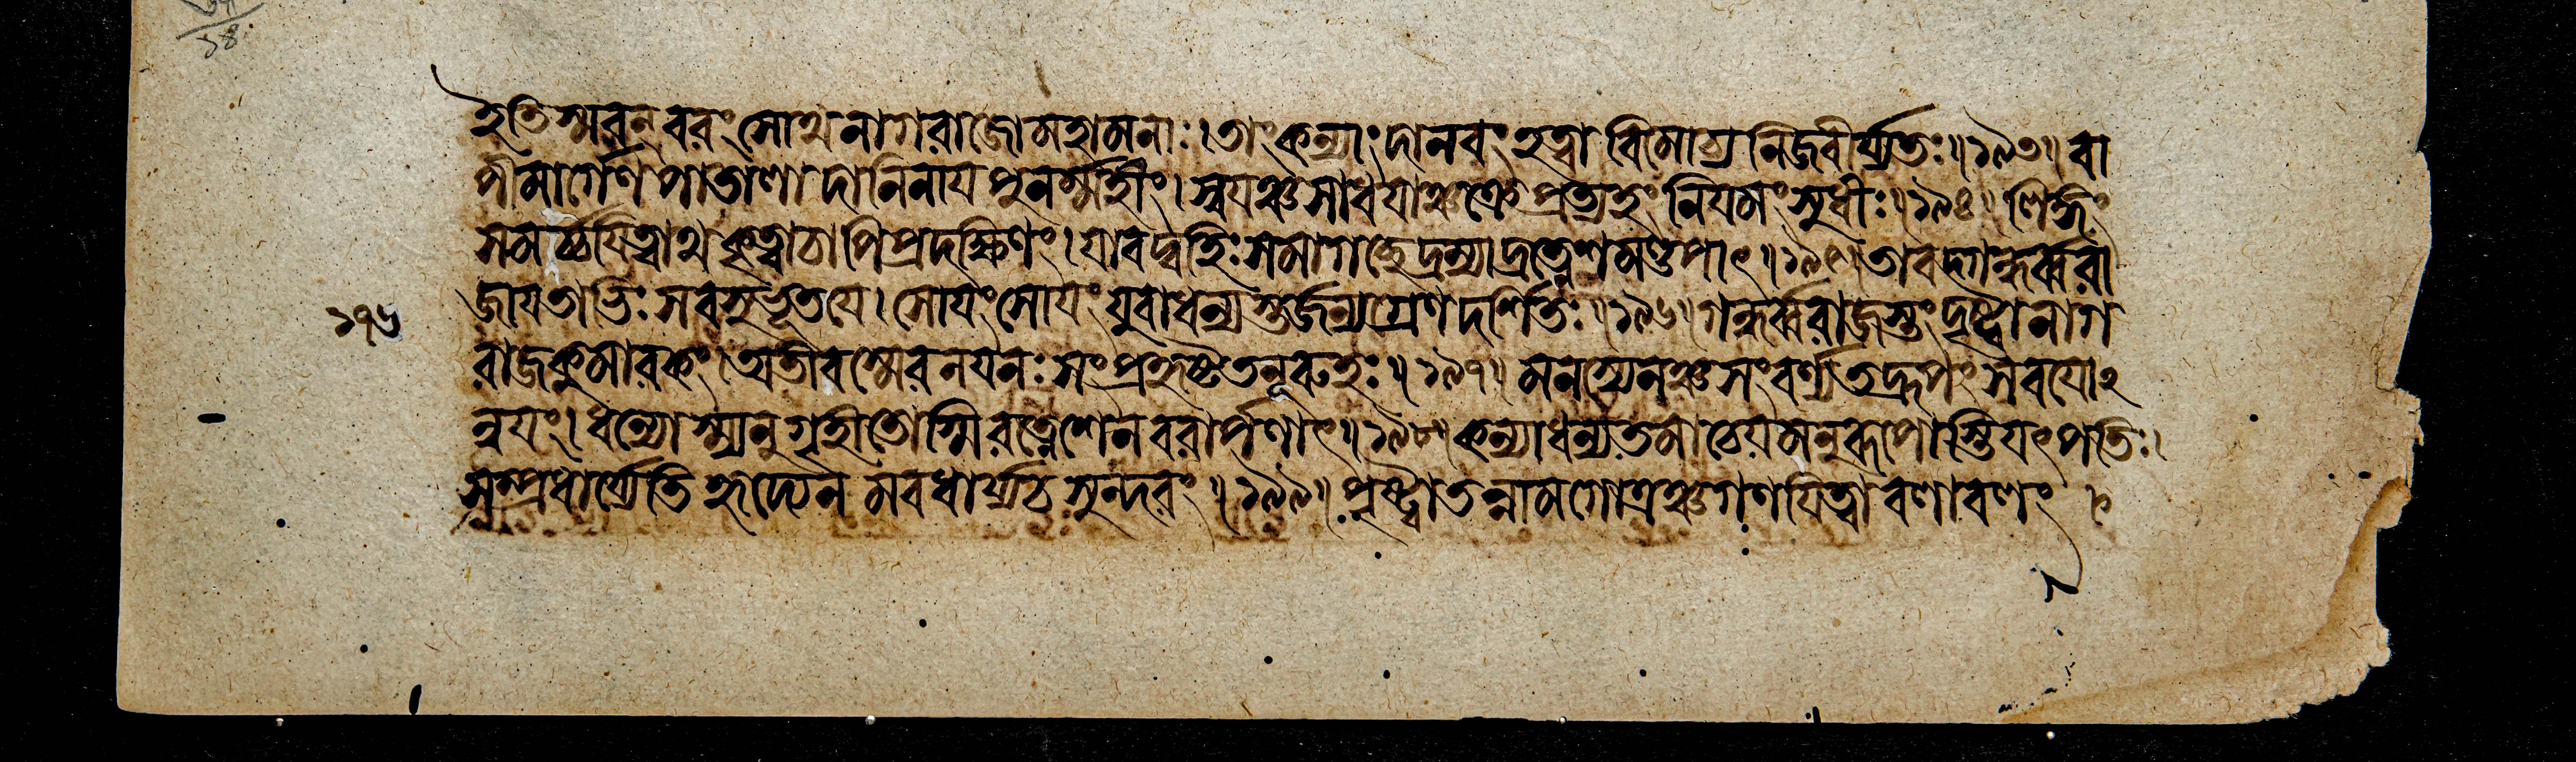 ইতি স্মরন্ বরং সোথ নাগরাজো মহামনাঃ। তাং কন্যাং দানবং হত্বা বিমোচ্য নিজবীর্য্যতঃ॥১৯৩॥ বা
পীমার্গেণ পাতালাদানিনায় পুনর্ম্মহীং। স্বয়ঞ্চ সাবয়োশ্চক্রে প্রত্যহং নিয়মং সুধীঃ॥১৯৪॥ লিঙ্গং
সমর্চ্চয়িত্বাথ কৃত্বা চাপি প্রদক্ষিণং। যাবদ্বহিঃ সমাগচ্ছেদ্রম্যাদ্রত্নেশমণ্ডপাৎ॥১৯৫॥ তাবদ্গন্ধর্ব্বরা
জায় তাভিঃ স বসুভূতয়ে। সোয়ং সোয়ং যুবা ধন্যস্তর্জ্জন্যগ্রেণ দর্শিতঃ॥১৯৬॥ গন্ধর্ব্বরাজস্তং দৃষ্ট্বা নাগ
১৭৬
রাজকুমারকং। অতীব স্মেরনয়নঃ সংপ্রহৃষ্টতনূরুহঃ॥১৯৭॥ মনস্যেনঞ্চ সংবর্ণ্য তদ্রূপং সবয়োঽ
ন্বয়ং। ধন্যোস্ম্যনুগৃহীতোস্মি রত্নেশেন বরার্পণাৎ॥১৯৮॥ কন্যা ধন্যতমা চেয়মনুরূপোস্তি যৎপতিঃ।
সম্প্রধার্য্যেতি হৃদ্যেনমবধার্য্য চ সুন্দরং॥১৯৯॥ পৃষ্ট্বা তন্নামগোত্রঞ্চ গণয়িত্বা বলাবলং